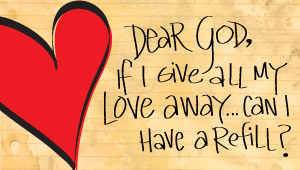 Dear God,
If I give all my
Love away... can I
Have a Refill?